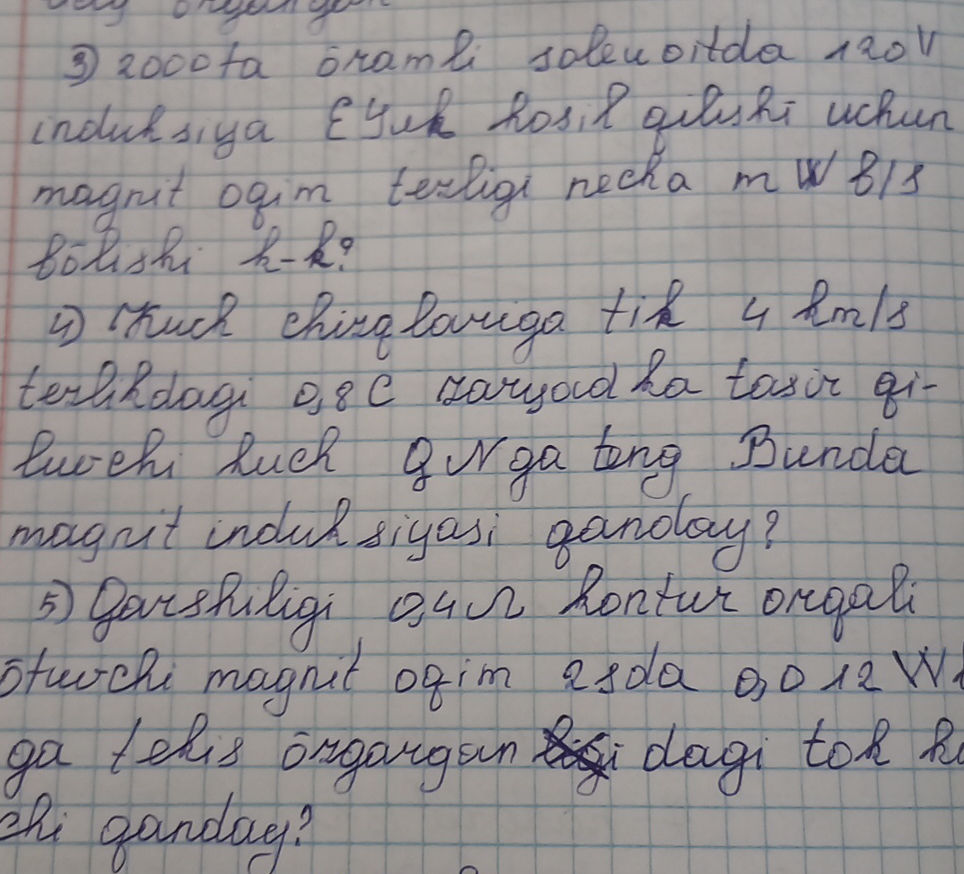 3) 2000ta ōramli solenoitda 120V
induksiya EYuk hosil qilishi uchun
magnit oqim tezligi necha mWb/s
bōlishi k-k?
4) Kuch chiziqlariga tik 4 km/s
tezlikdagi 0,8C zaryad ka tasir qi-
luvchi kuch Nga teng Bunda
magnit induksiyasi qanday?
5) Qarshiligi 0,4Ω kontur orqali
ōtuvchi magnit oqim 2sda 0,012 W
ga tekis ōzgargan dagi tok
chi qanday?